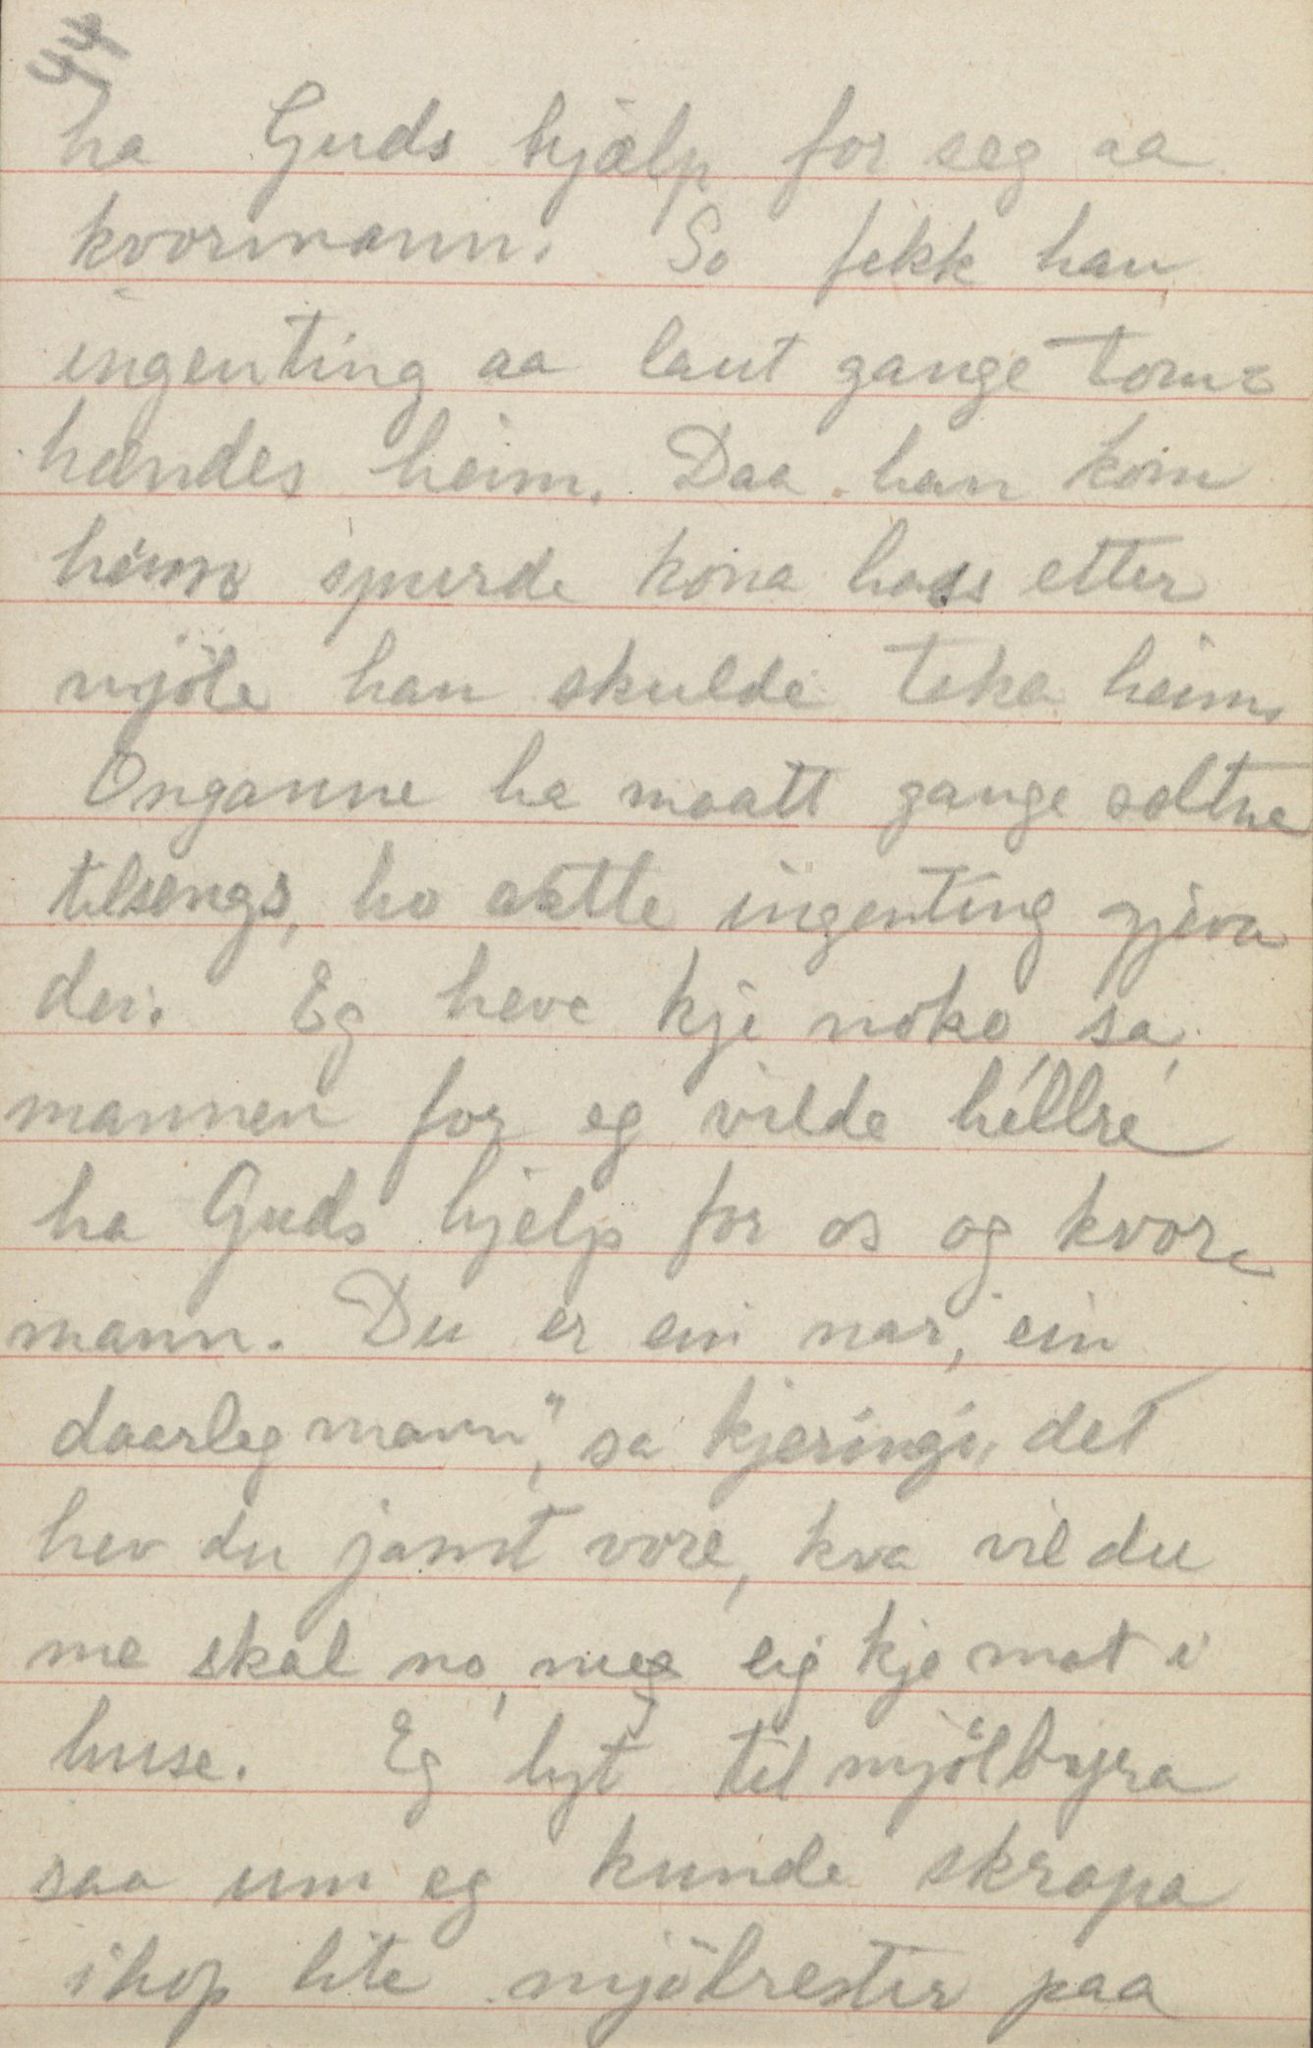 ha Guds hjælp for seg aa
kvormann. So fekk han
ingenting aa laut gange tom=
hændes heim. Daa han kom
heim spurde kona hass etter
mjöle han skulde teka heim,
Onganne ha maatt gange soltne
tilsengs, ho aatte ingenting gjeva
dei. Eg heve kje noko, sa,
mannen for eg vilde hellre
ha Guds hjelp for os og kvore
mann. Du er ein nar, ein
daarleg mann", sa kjeringi, det
hev du jamt vore, kva vil du
me skal no, me eig kje mat i
huse. Eg lyt til mjölbyra
saa um eg kunde skrapa
ihop lite mjölrester paa